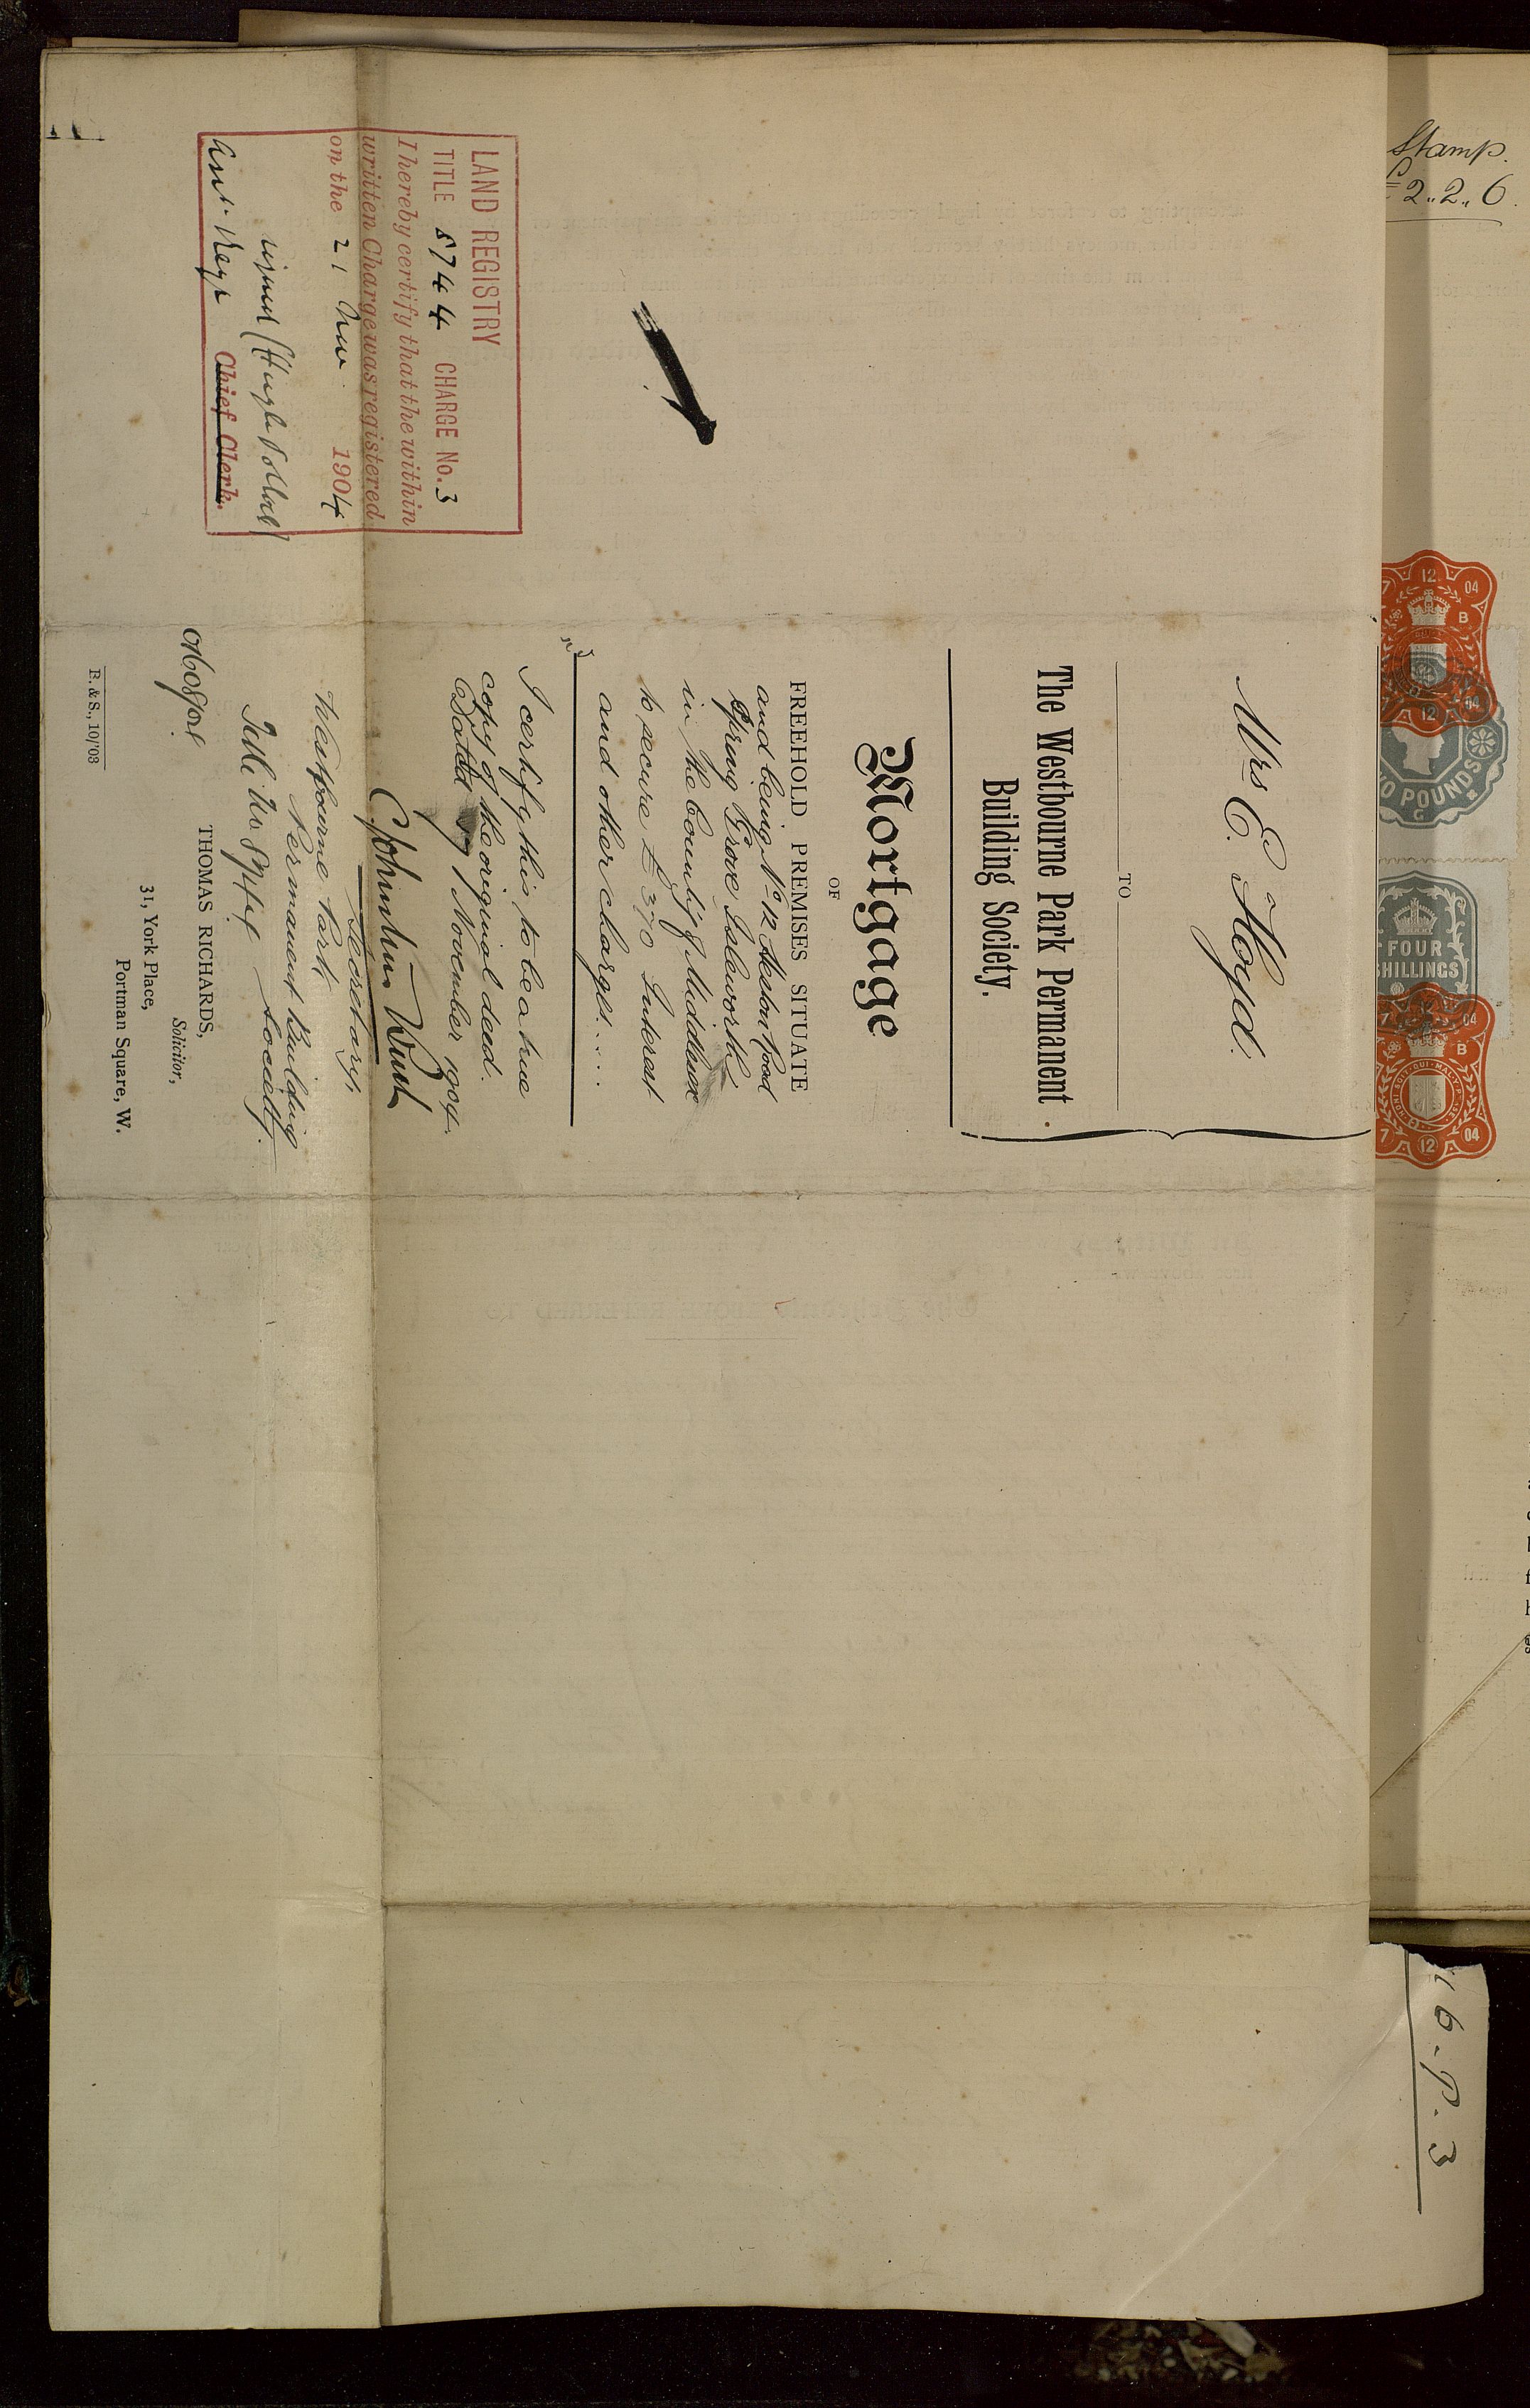 Stamp.
£2.,2.,6.
12.
04
B
12
04
TWO POUNDS
G
FOUR
SHILLINGS
04
B
HONI·SOIT·QUI·MAL·Y·PENSE
7
12
04
6 . P. 3
Mrs E. Lloyd.
TO
The Westbourne Park Permanent
Building Society.
Mortgage
OF
FREEHOLD PREMISES SITUATE
and being No 12 Heston Road
Spring Grove Isleworth
in the County of Middlesex
to secure £370 Interest
and other charges....
I certify this to be a true
copy of the original deed.
Dated 7 November 1904.
Secretary,
Westbourne Park
Permanent Building
Society.
Title No
THOMAS RICHARDS,
Solicitor,
31, York Place,
Portman Square, W.
B. & S., 10/'03
LAND REGISTRY
TITLE 5744 CHARGE No. 3
I hereby certify that the within
written Charge was registered
on the 21 Nov. 1904
signed (Hugh Pollock)
Asst. Regr Chief Clerk.